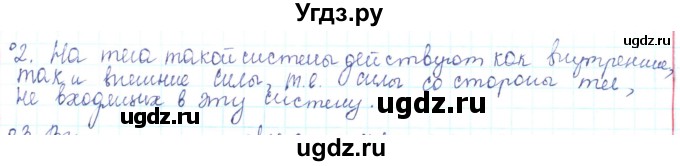 Угдз.ру
°2. На тела такой системы действуют как внутренние,
так и внешние силы, т.е. силы со стороны тел,
не входящих в эту систему.
ugdz.ru ugdz.ru
ugdz.ru
ugdz.ru